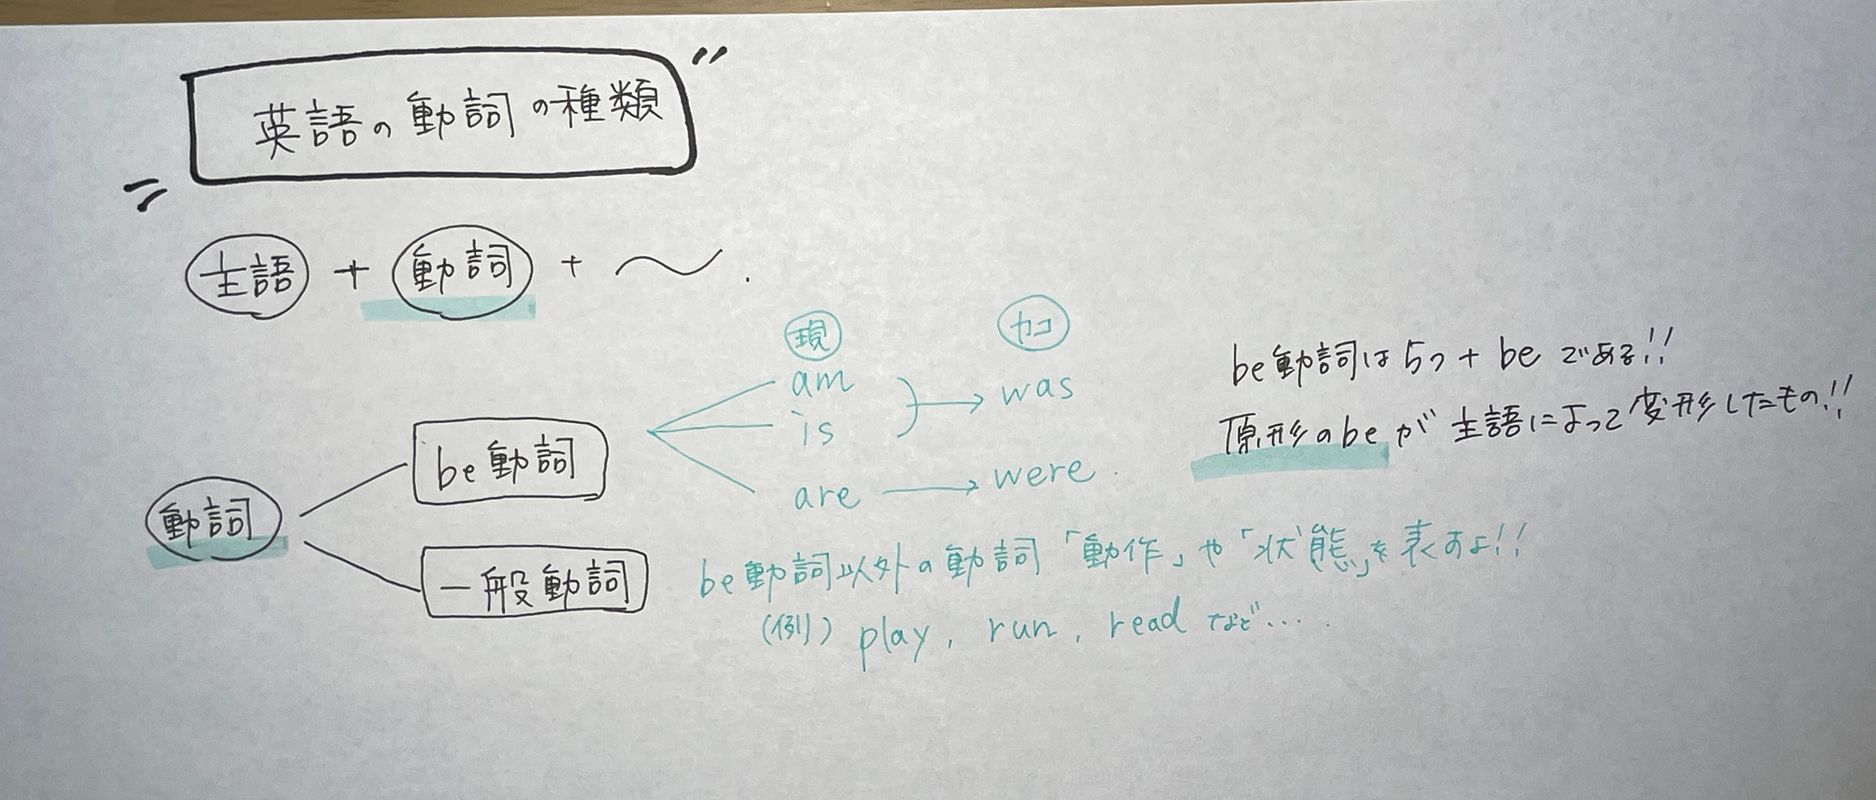 英語の動詞の種類
主語 + 動詞 + 〜.
現 カコ
am
is → was
are → were.
be動詞は5つ + be である!!
原形のbeが主語によって変形したもの!!
動詞
be動詞
一般動詞
be動詞以外の動詞「動作」や「状態」を表すよ!!
(例) play, run, read など.....